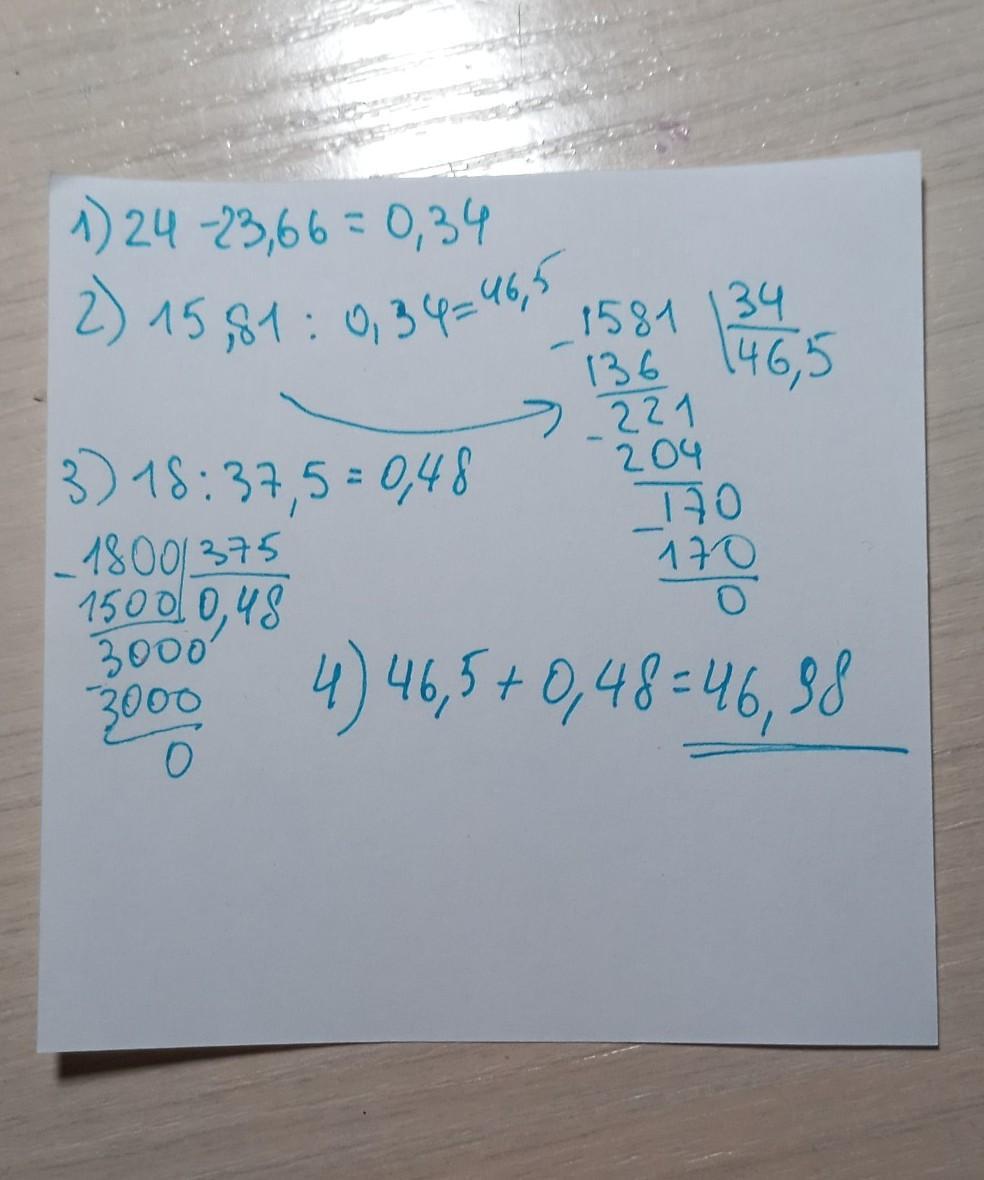 1) 24 - 23,66 = 0,34
2) 15,81 : 0,34 = 46,5
- 1581 | 34
136 46,5
- 221
204
- 170
170
0
3) 18 : 37,5 = 0,48
- 1800 | 375
1500 0,48
- 3000
3000
0
4) 46,5 + 0,48 = 46,98